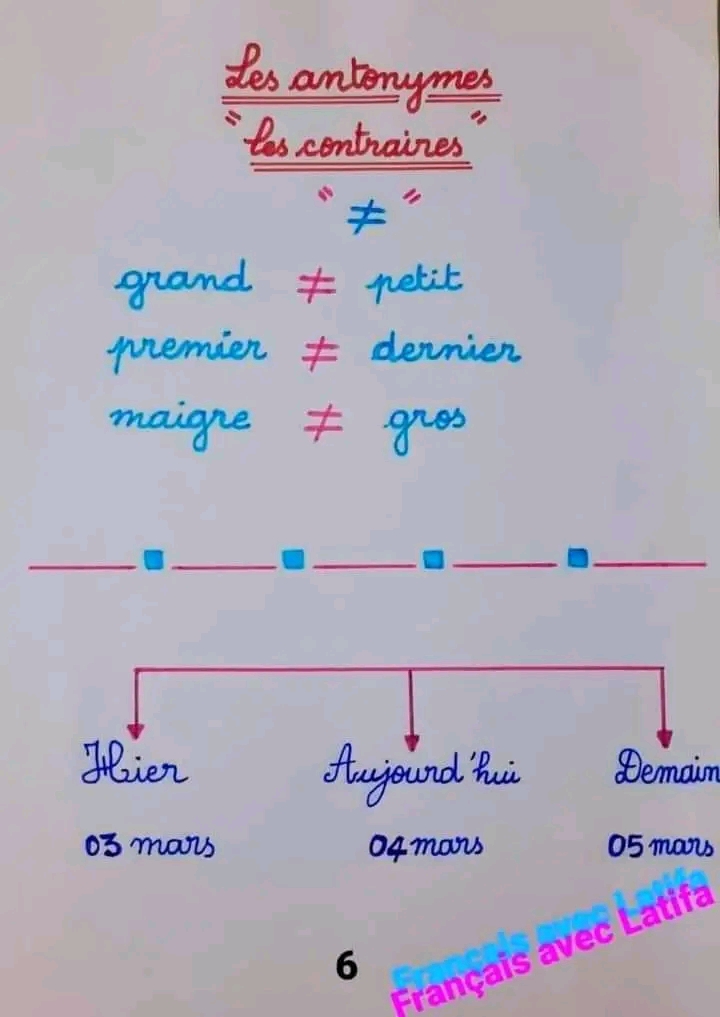 Les antonymes
"les contraires"
" ≠ "
grand ≠ petit
premier ≠ dernier
maigre ≠ gros
Hier Aujourd'hui Demain
03 mars 04 mars 05 mars
Français avec Latifa
Français avec Latifa
6